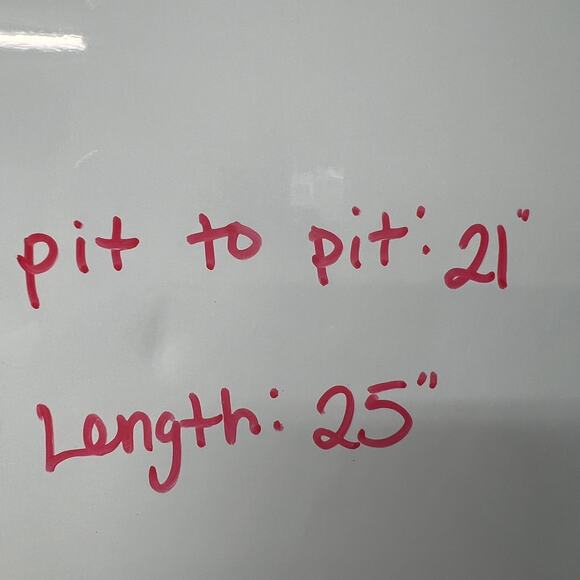 pit to pit: 21"
Length: 25"